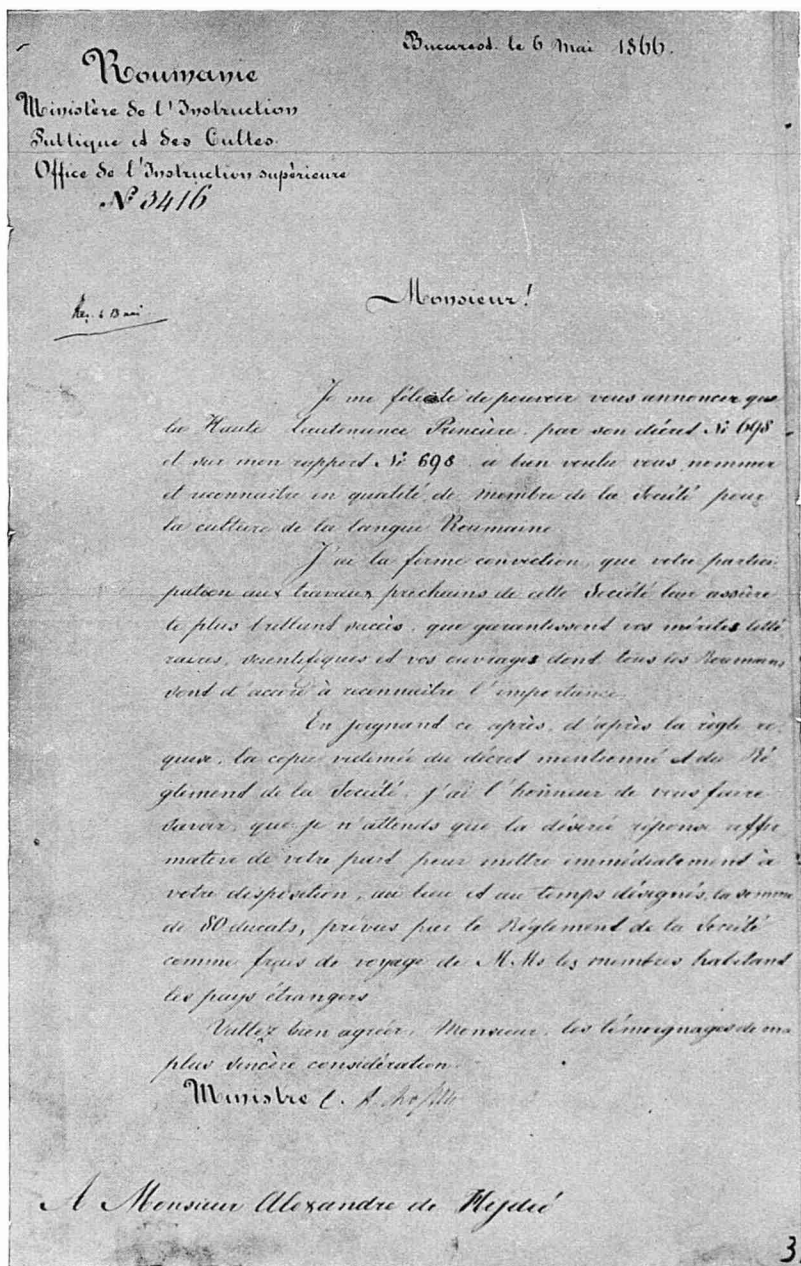 Bucarest. le 6 Mai 1866.
Roumanie
Ministère de l'Instruction
Publique et des Cultes.
Office de l'Instruction supérieure
№ 3416
Monsieur!
Je me félicite de pouvoir vous annoncer que
la Haute Lieutenance Princière, par son décret № 698
et sur mon rapport № 698 a bien voulu vous nommer
et reconnaître en qualité de membre de la Société pour
la culture de la langue Roumaine.
J'ai la ferme conviction, que votre partici-
pation aux travaux prochains de cette Société leur assure
le plus brillant succès, que garantissent vos mérites litté
raires, scientifiques et vos ouvrages dont tous les Roumains
sont d'accord à reconnaître l'importance.
En joignant ci après, d'après la règle re-
quise, la copie vidimée du décret mentionné et du Ré
glement de la Société, j'ai l'honneur de vous faire
savoir, que je n'attends que la désirée réponse affir
mative de votre part pour mettre immédiatement à
votre disposition, au lieu et au temps désignés, la somme
de 80 ducats, prévus par le Réglement de la Société
comme frais de voyage de M.Ms les membres habitant
les pays étrangers
Vuillez bien agréer, Monsieur, les témoignages de ma
plus sincère considération.
Ministre C. A. Rosetti
A Monsieur Alexandre de Hejdéô
3